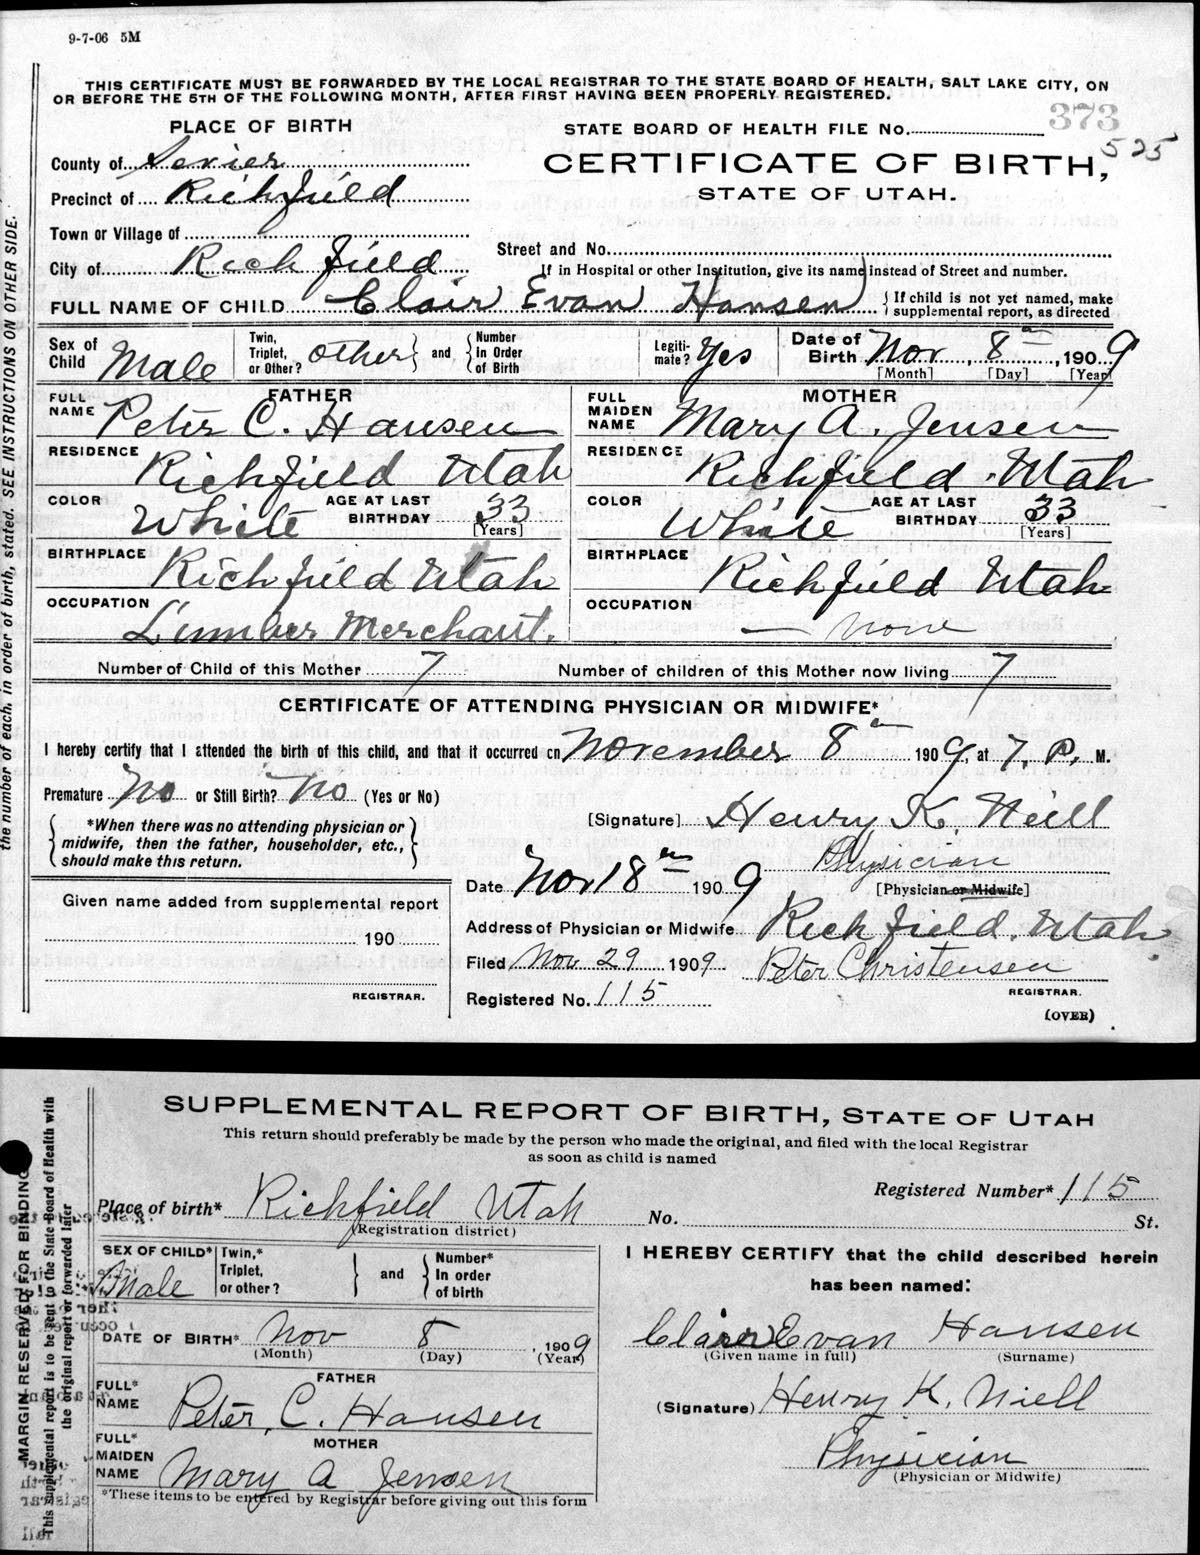 9-7-06 5M
THIS CERTIFICATE MUST BE FORWARDED BY THE LOCAL REGISTRAR TO THE STATE BOARD OF HEALTH, SALT LAKE CITY, ON
OR BEFORE THE 5TH OF THE FOLLOWING MONTH, AFTER FIRST HAVING BEEN PROPERLY REGISTERED.
the number of each, in order of birth, stated. SEE INSTRUCTIONS ON OTHER SIDE.
PLACE OF BIRTH
County of Sevier
Precinct of Richfield
Town or Village of
City of Richfield
STATE BOARD OF HEALTH FILE No. 373
525
CERTIFICATE OF BIRTH,
STATE OF UTAH.
Street and No.
If in Hospital or other Institution, give its name instead of Street and number.
FULL NAME OF CHILD Clair Evan Hansen { If child is not yet named, make
supplemental report, as directed
Sex of Child Male
Twin, Triplet, or Other? other } and { Number In Order of Birth
Legitimate? Yes
Date of Birth Nov 8th, 1909
[Month] [Day] [Year]
FATHER
FULL NAME Peter C. Hansen
RESIDENCE Richfield Utah
COLOR White AGE AT LAST BIRTHDAY 33 [Years]
BIRTHPLACE Richfield Utah
OCCUPATION Lumber Merchant.
MOTHER
FULL MAIDEN NAME Mary A. Jensen
RESIDENCE Richfield Utah
COLOR White AGE AT LAST BIRTHDAY 33 [Years]
BIRTHPLACE Richfield Utah
OCCUPATION — none
Number of Child of this Mother 7 Number of children of this Mother now living 7
CERTIFICATE OF ATTENDING PHYSICIAN OR MIDWIFE*
I hereby certify that I attended the birth of this child, and that it occurred on November 8th 1909, at 7. P. M.
Premature No or Still Birth? No (Yes or No)
{ *When there was no attending physician or
midwife, then the father, householder, etc.,
should make this return. }
[Signature] Henry K. Neill
Physician
[Physician or Midwife]
Date Nov 18th 1909
Address of Physician or Midwife Richfield. Utah
Filed Nov 29 1909 Peter Christensen
REGISTRAR.
Registered No. 115
(OVER)
Given name added from supplemental report
190
REGISTRAR.
MARGIN RESERVED FOR BINDING
This supplemental report is to be sent to the State Board of Health with
the original report or forwarded later
SUPPLEMENTAL REPORT OF BIRTH, STATE OF UTAH
This return should preferably be made by the person who made the original, and filed with the local Registrar
as soon as child is named
Registered Number* 115
Place of birth* Richfield Utah No. St.
(Registration district)
SEX OF CHILD* Male
Twin,* Triplet, or other? } and { Number* In order of birth
DATE OF BIRTH* Nov 8, 1909
(Month) (Day) (Year)
FATHER
FULL* NAME Peter, C. Hansen
MOTHER
FULL* MAIDEN NAME Mary A Jensen
*These items to be entered by Registrar before giving out this form
I HEREBY CERTIFY that the child described herein
has been named:
Clair Evan Hansen
(Given name in full) (Surname)
(Signature) Henry K. Niell
Physician
(Physician or Midwife)